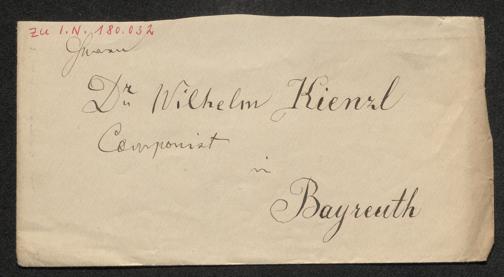 zu I.N. 180.032
Herrn
Dr. Wilhelm Kienzl
Componist
in
Bayreuth